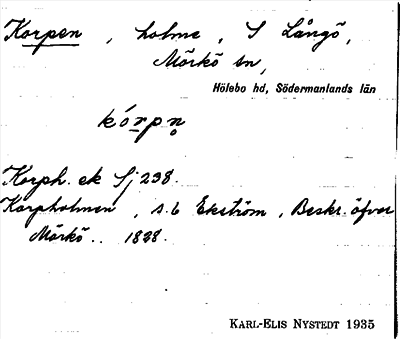 Korpen, holme, S Långö,
Mörkö sn,
Hölebo hd, Södermanlands län
kórpn̥
Korph. ek Sj 238.
Korpholmen, s. 6 Ekström, Beskr. öfver
Mörkö.. 1828.
KARL-ELIS NYSTEDT 1935